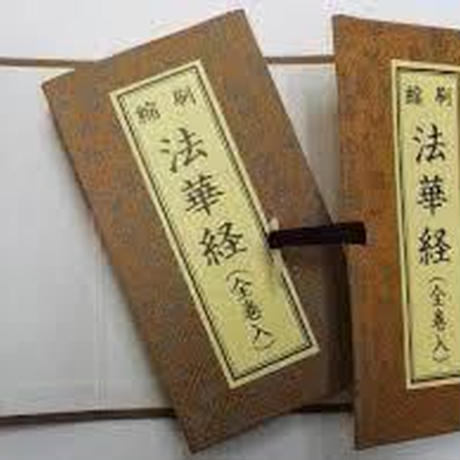 縮刷
法華経(全巻入)
縮刷
法華経(全巻入)